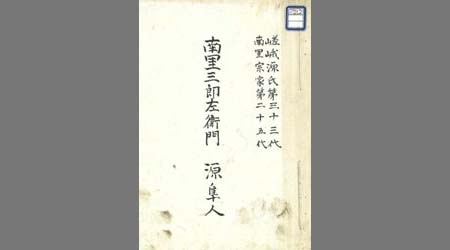 嵯峨源氏第三十三代
南里宗家第二十五代
南里三郎左衛門 源隼人